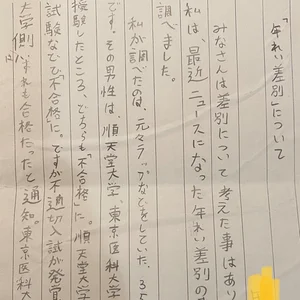 「年れい差別」について
みなさんは差別について考えた事はあり
私は、最近ニュースになった年れい差別の
調べました。
私が調べたのは、元々ラップなどをしていた、35
です。その男性は、順天堂大学、東京医科大学
接験したところ、どちらも「不合格」に。順天堂大学
試験などで不合格に。ですが不適切入試が発覚
大学側はどれも合格だったと通知。東京医科大